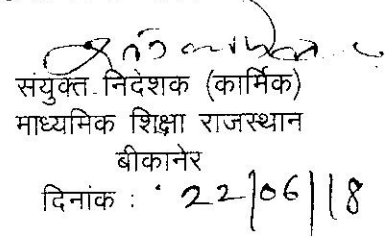 संयुक्त निदेशक (कार्मिक)
माध्यमिक शिक्षा राजस्थान
बीकानेर
दिनांक : 22/06/18